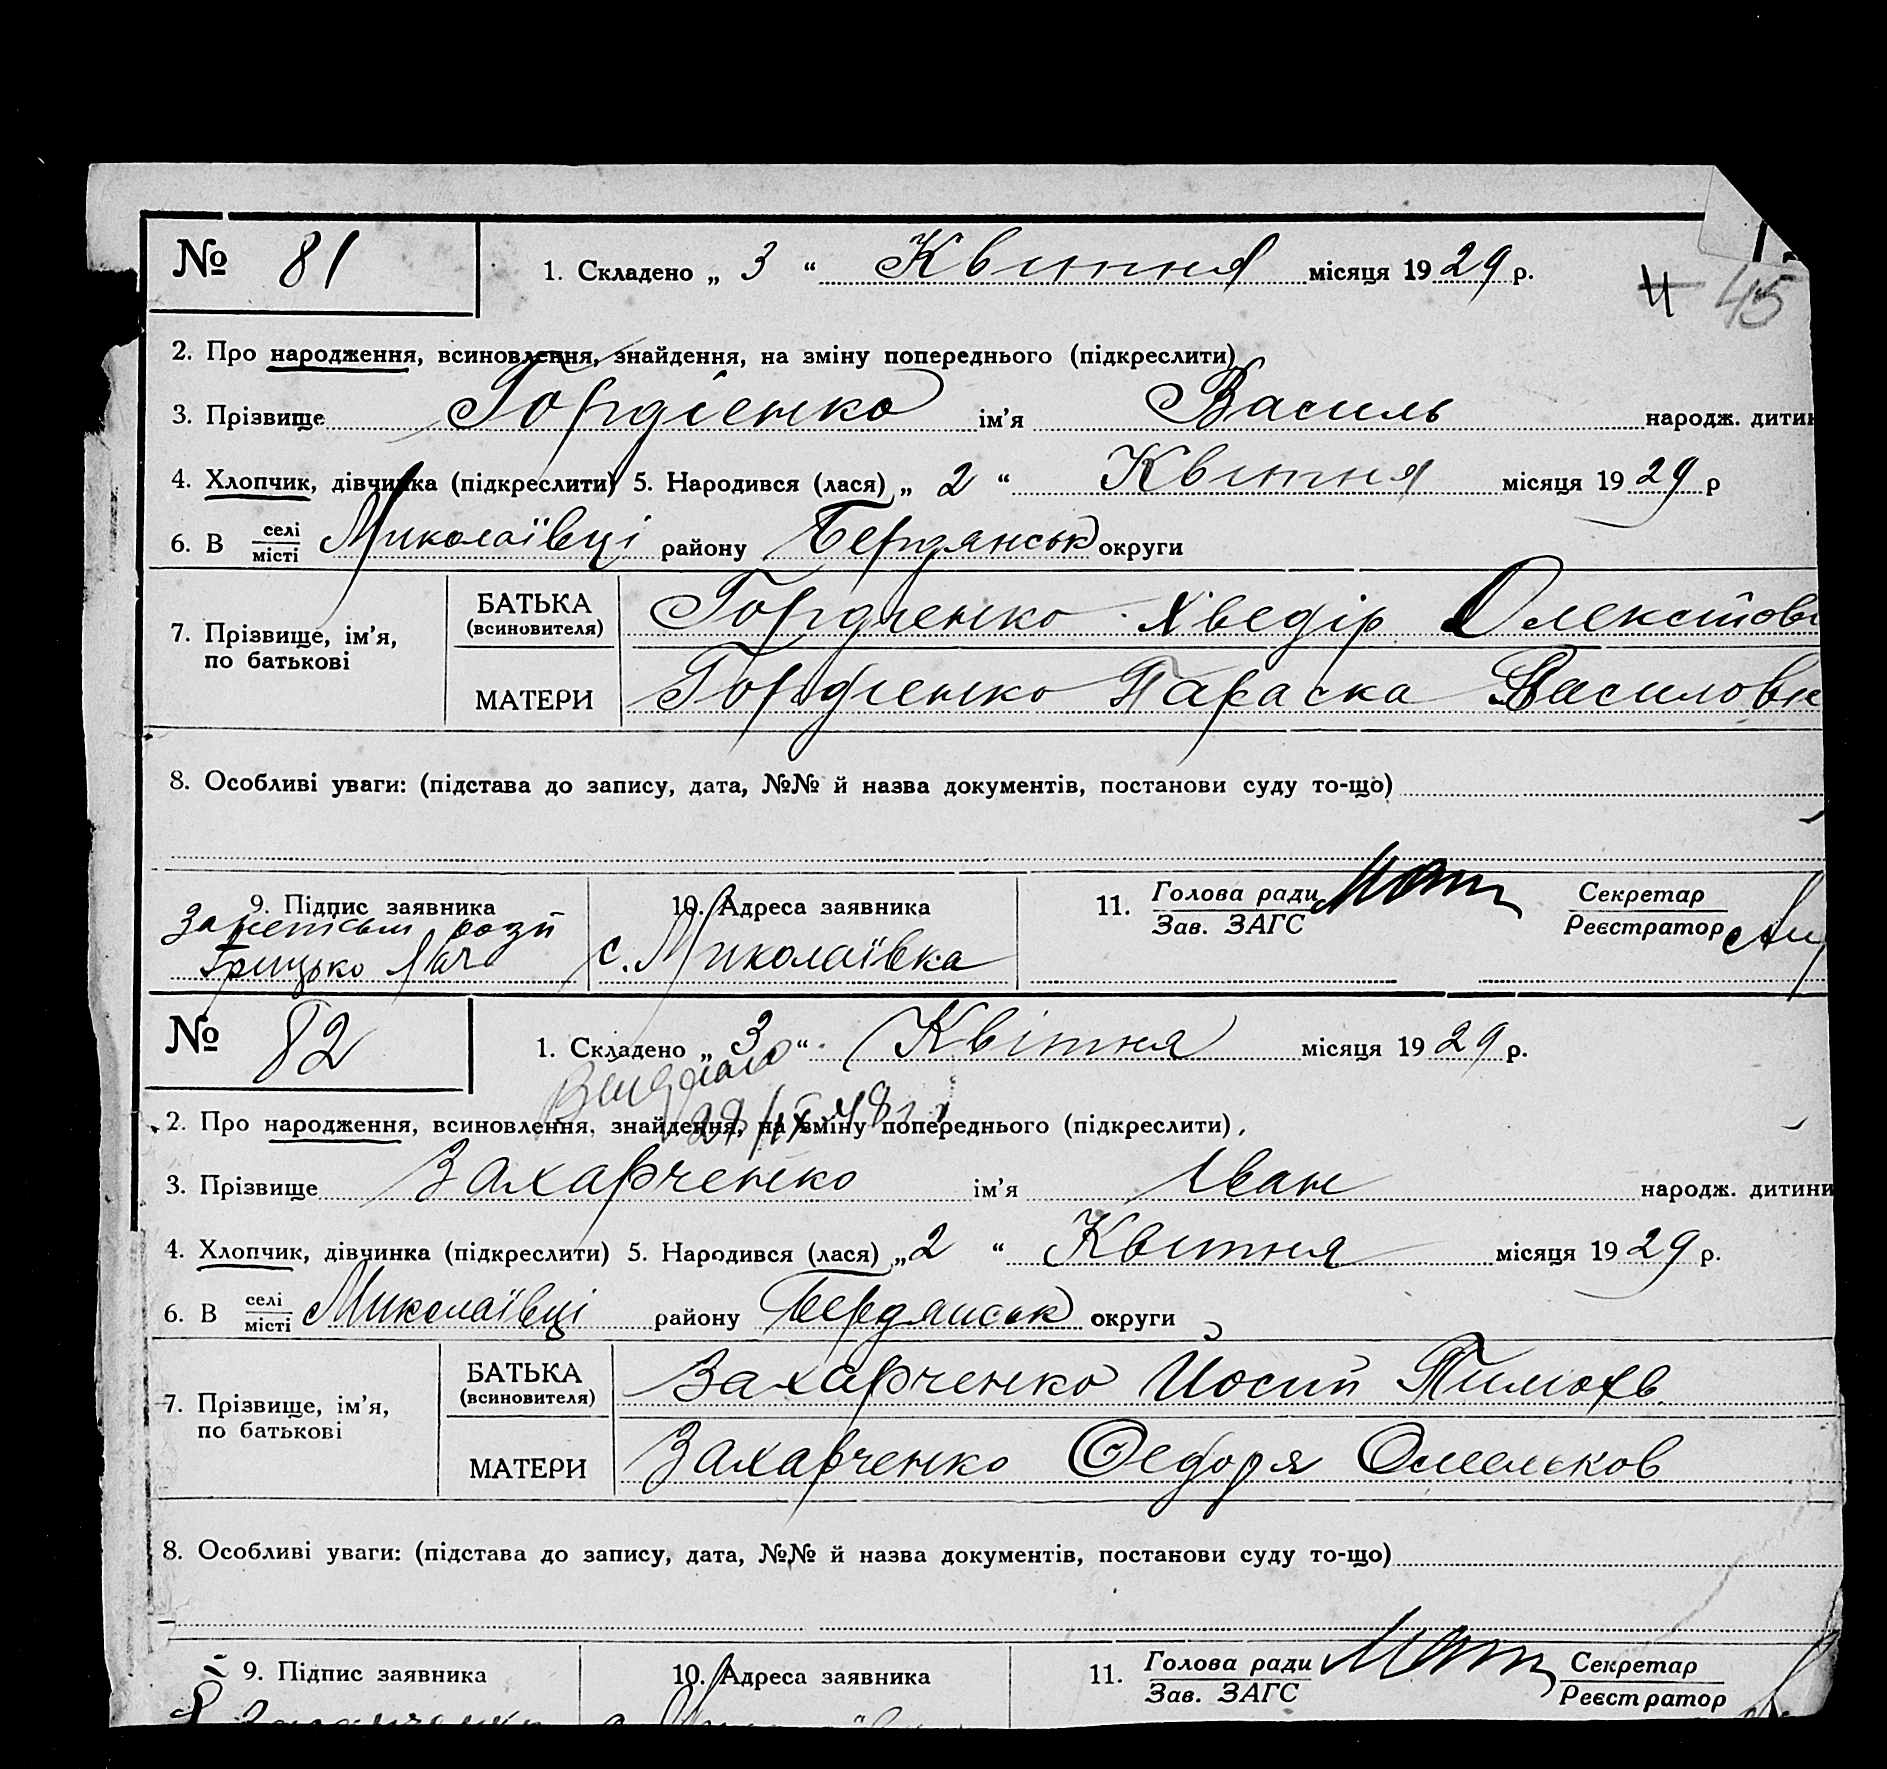 № 81 1. Складено „ 3 “ Квітня місяця 1929 р.
4 45
2. Про народження, всиновлення, знайдення, на зміну попереднього (підкреслити)
3. Прізвище Гордієнко ім’я Василь народж. дитин
4. Хлопчик, дівчинка (підкреслити) 5. Народився (лася) „ 2 “ Квітня місяця 1929 р
6. В селі місті Миколаївці району Бердянськ округи
7. Прізвище, ім’я, по батькові
БАТЬКА (всиновителя) Гордіенко Хведір
МАТЕРИ Гордіенко Параска Василовн
8. Особливі уваги: (підстава до запису, дата, №№ й назва документів, постанови суду то-що)
9. Підпис заявника 10. Адреса заявника 11. Голова ради Зав. ЗАГС Секретар Реєстратор
Грицько с. Миколаївка
№ 82 1. Складено „ 3 “ Квітня місяця 1929 р.
Видано
29/IX 48 г.
2. Про народження, всиновлення, знайдення, на зміну попереднього (підкреслити)
3. Прізвище Захарченко ім’я Іван народж. дитини
4. Хлопчик, дівчинка (підкреслити) 5. Народився (лася) „ 2 “ Квітня місяця 1929 р.
6. В селі місті Миколаївці району Бердянськ округи
7. Прізвище, ім’я, по батькові
БАТЬКА (всиновителя) Захарченко Йосип Тимохв
МАТЕРИ Захарченко Федоря Омельков
8. Особливі уваги: (підстава до запису, дата, №№ й назва документів, постанови суду то-що)
9. Підпис заявника 10. Адреса заявника 11. Голова ради Зав. ЗАГС Секретар Реєстратор